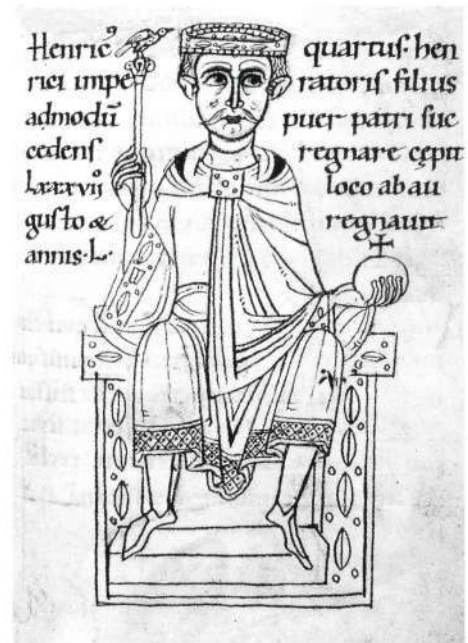 Henricꝰ quartus hen
rici impe ratoris filius
admodū puer patri suc
cedens regnare cępit
lxxxvij loco ab au
gusto & regnauit
annis·L·